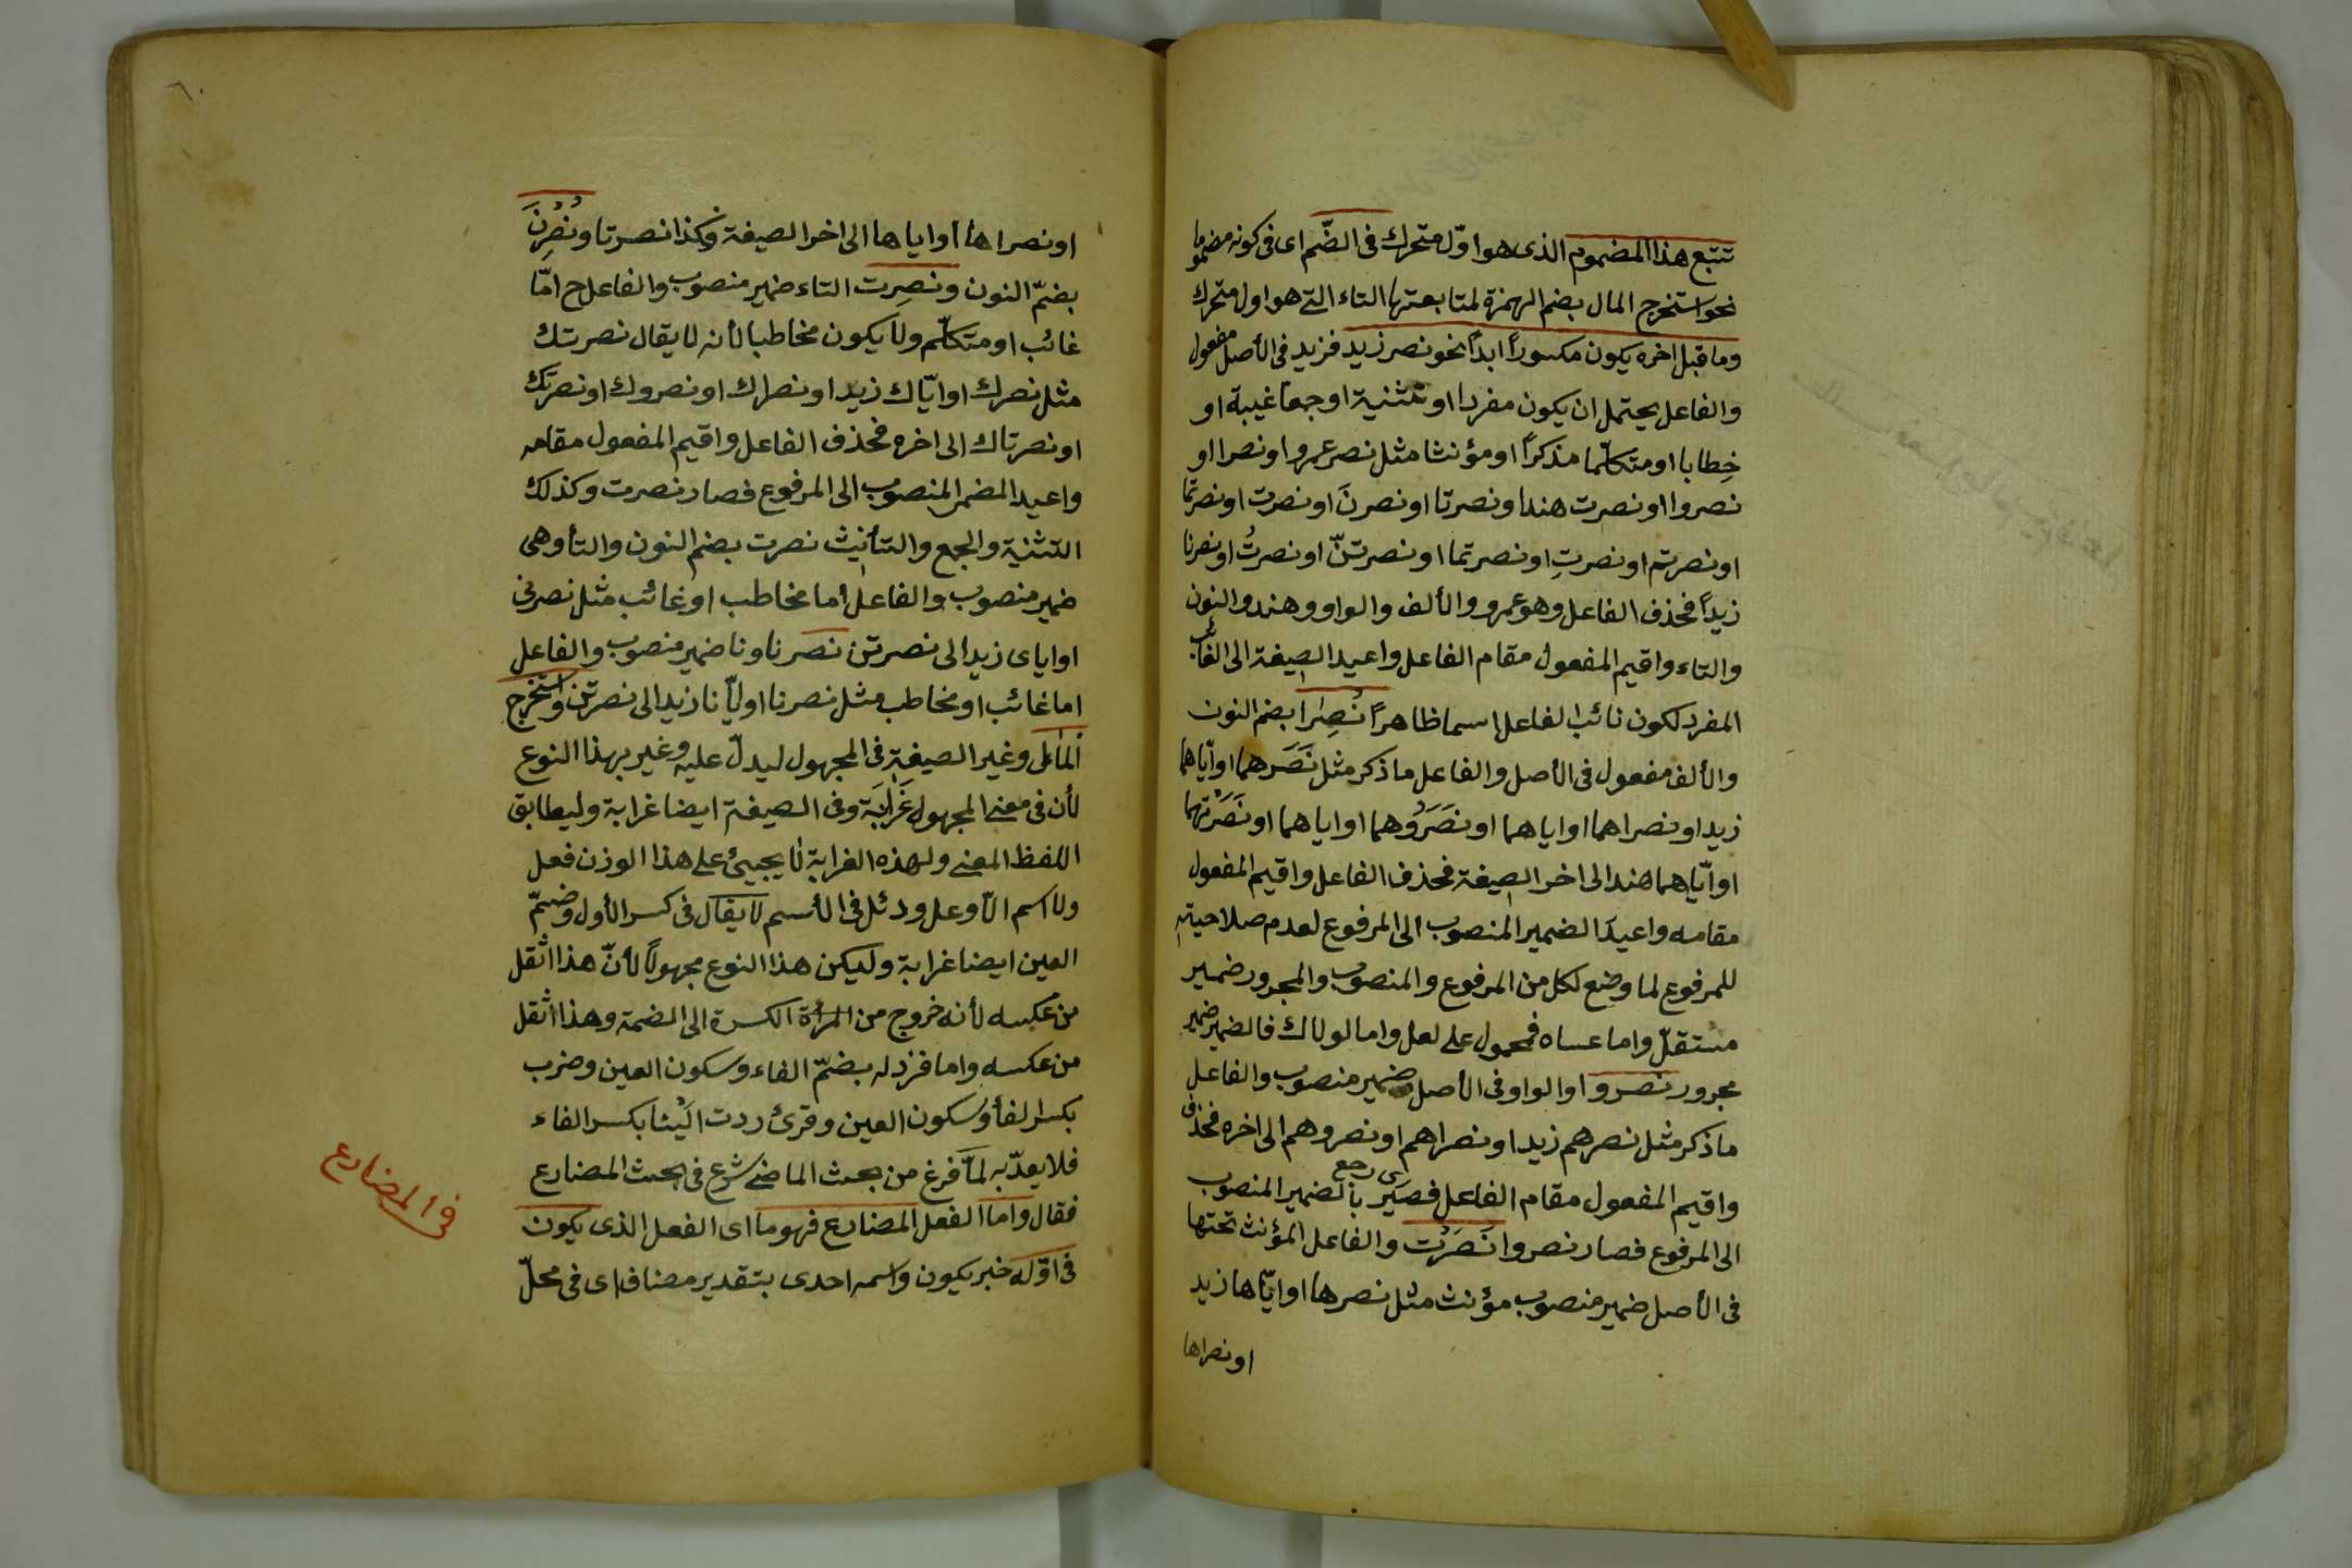 تتبع هذا المضموم الذى هو اوّل متحرك فى الضّم اى فى كونه مضموما
نحو استخرج المال بضم الهمزة لمتابعتها التاء التى هو اول متحرك
وما قبل اخره يكون مكسوراً ابداً نحو نصر زيد فزيد فى الأصل مفعول
والفاعل يحتمل ان يكون مفردا او تثنية او جمعا غيبة او
خِطابا او متكلّما مذكراً او مؤنثا مثل نصر عمرو او نصرا او
نصروا او نصرت هندا ونصرتا او نصرنَ او نصرت او نصرتما
او نصرتم او نصرتِ او نصرتما او نصرتنّ او نصرتُ او نصرنا
زيداً فحذف الفاعل وهو عمرو والألف والواو وهند والنون
والتاء واقيم المفعول مقام الفاعل واعيد الصيغة الى الغائب
المفرد لكون نائب الفاعل اسما ظاهراً نُصِرَا بضم النون
والألف مفعول فى الأصل والفاعل ما ذكر مثل نَصَرَهما او اياهما
زيد او نصراهما او اياهما او نَصَرُوهما او اياهما او نَصَرَتْهما
او ايّاهما هند الى اخر الصيغة فحذف الفاعل واقيم المفعول
مقامه واعيد الضمير المنصوب الى المرفوع لعدم صلاحيته
للمرفوع لما وضع لكل من المرفوع والمنصوب والمجرور ضمير
مستقلّ واما عساه فمحمول على لعل واما لولاك فالضمير ضمير
مجرور نصروا والواو فى الأصل ضمير منصوب والفاعل
ما ذكر مثل نصرهم زيد او نصراهم او نصروهم الى اخره فحذف
واقيم المفعول مقام الفاعل فصير اى رجع بالضمير المنصوب
الى المرفوع فصار نصروا نَصَرَتْ والفاعل المؤنث تحتها
فى الأصل ضمير منصوب مؤنث مثل نصرها او ايّاها زيد
او نصراها
او نصراها او اياها الى اخر الصيغة وكذا نصرتا ونُصِرْنَ
بضمّ النون ونصِرت التاء ضمير منصوب والفاعل ح امّا
غائب او متكلّم ولا يكون مخاطبا لأنه لا يقال نصرتك
مثل نصرك او ايّاك زيد او نصراك او نصروك او نصرتك
او نصرتاك الى اخره فحذف الفاعل واقيم المفعول مقامه
واعيد المضمر المنصوب الى المرفوع فصار نصرت وكذلك
التثنية والجمع والتأنيث نصرت بضم النون والتأ وهى
ضمير منصوب والفاعل أما مخاطب او غائب مثل نصرنى
او اياى زيد الى نصرتن نصرنا ونا ضمير منصوب والفاعل
اما غائب او مخاطب مثل نصرنا او ايّانا زيد الى نصرتن واستخرج
المال وغير الصيغة فى المجهول ليدلّ عليه وغير بهذا النوع
لأن فى معنى المجهول غَرَابَة وفى الصيغة ايضا غرابة وليطابق
اللفظ المعنى ولهذه الغرابة لا يجيئ على هذا الوزن فعل
ولا اسم الّا وعل ودئل فى الأسم لا يقال فى كسر الأول وضمّ
العين ايضا غرابة وليكن هذا النوع مجهولاً لأنّ هذا اثقل
من عكسه لأنه خروج من الكسرة الى الضمة وهذا اثقل
من عكسه واما فزد له بضمّ الفاء وسكون العين وضرب
بكسر الفأ وسكون العين وقرئ ردت الَيْنا بكسر الفاء
فلا يعدّ به لمّا فرغ من بحث الماضى شرع فى بحث المضارع
فقال واما الفعل المضارع فهو ما اى الفعل الذى يكون
فى اوّله خبر يكون واسمه احدى بتقدير مضاف اى فى محلّ
فى المضارع